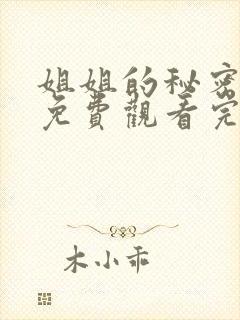 姐姐的秘密
免費觀看完
木小乖